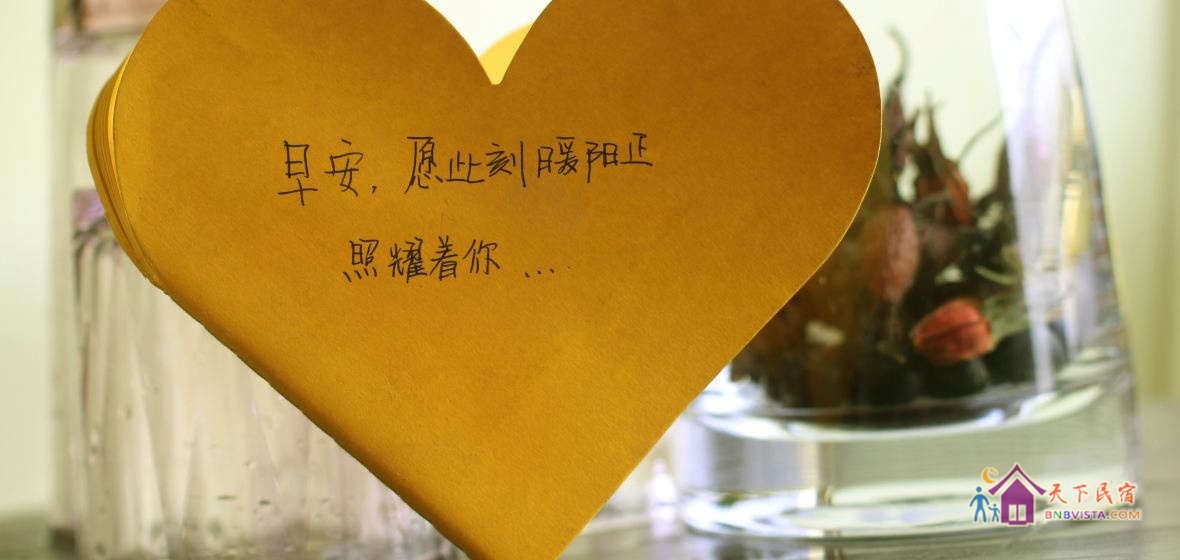 早安，愿此刻暖阳正
照耀着你 ....
天下民宿
BNBVISTA.COM